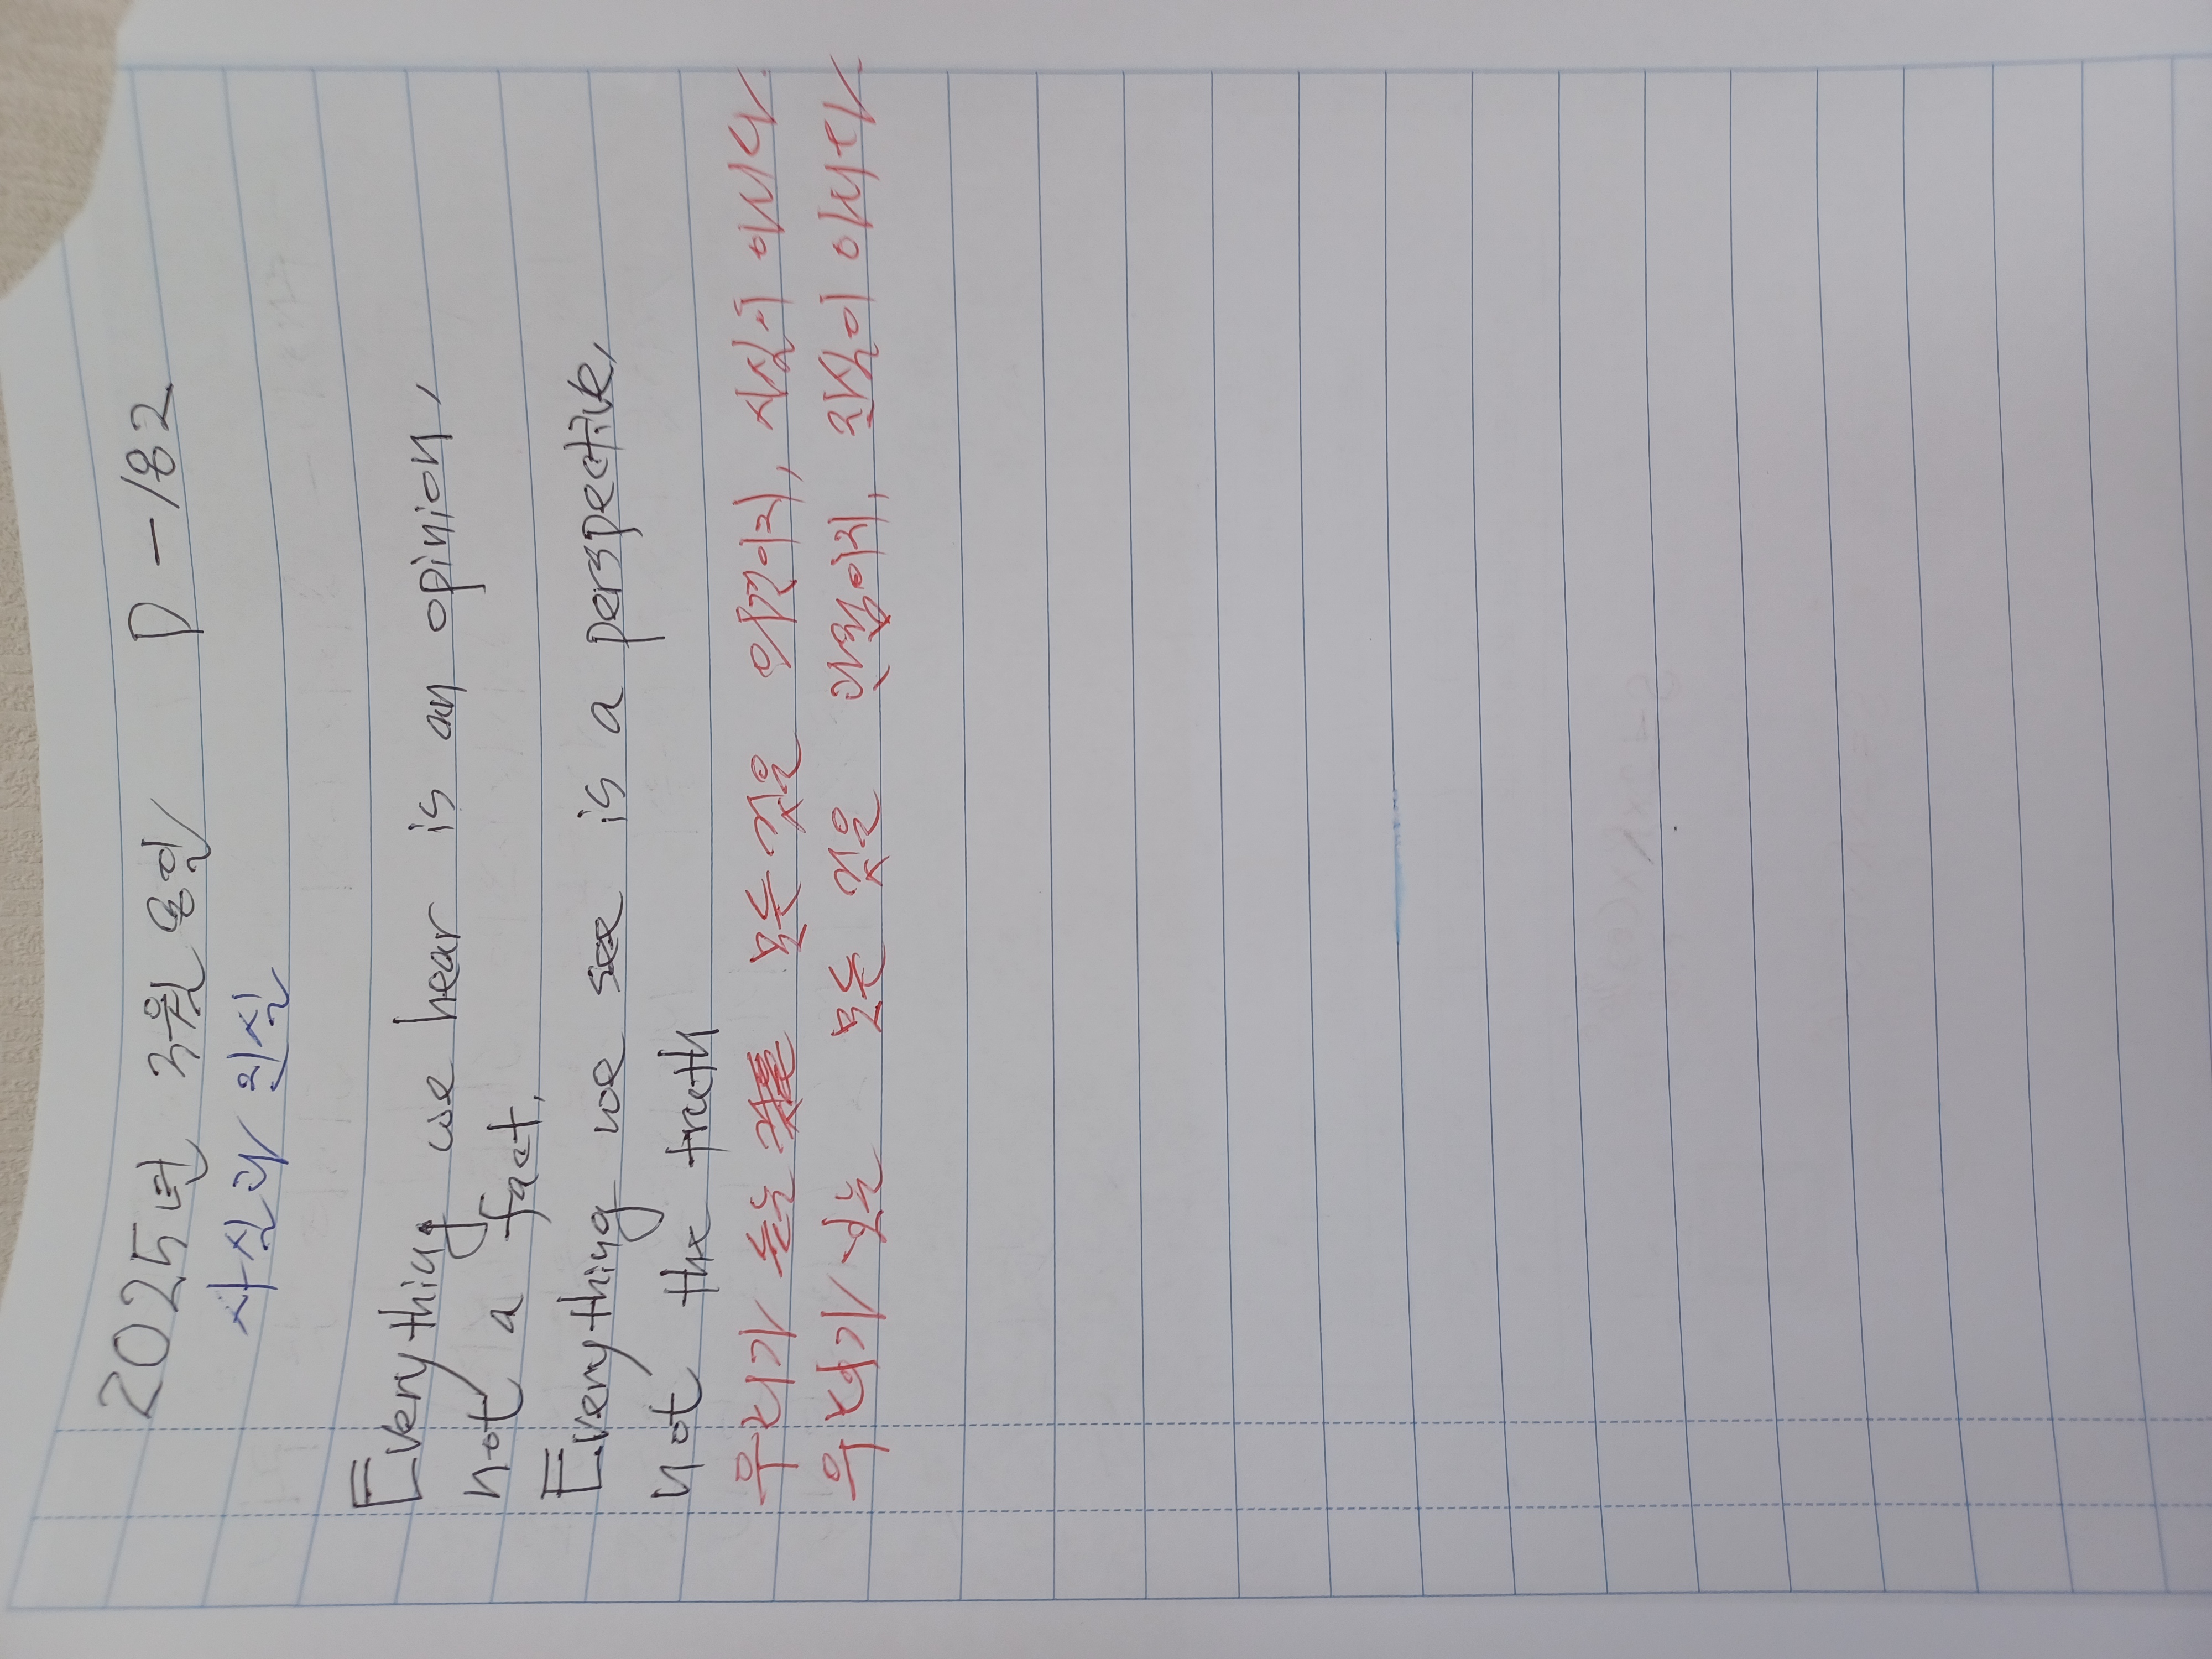 2025년 3월 8일 D-182
사실과 인식
Everything we hear is an opinion,
not a fact.
Everything we see is a perspective,
not the truth
우리가 듣는 모든 것은 의견이지, 사실이 아니다.
우리가 보는 모든 것은 관점이지, 진실이 아니다.